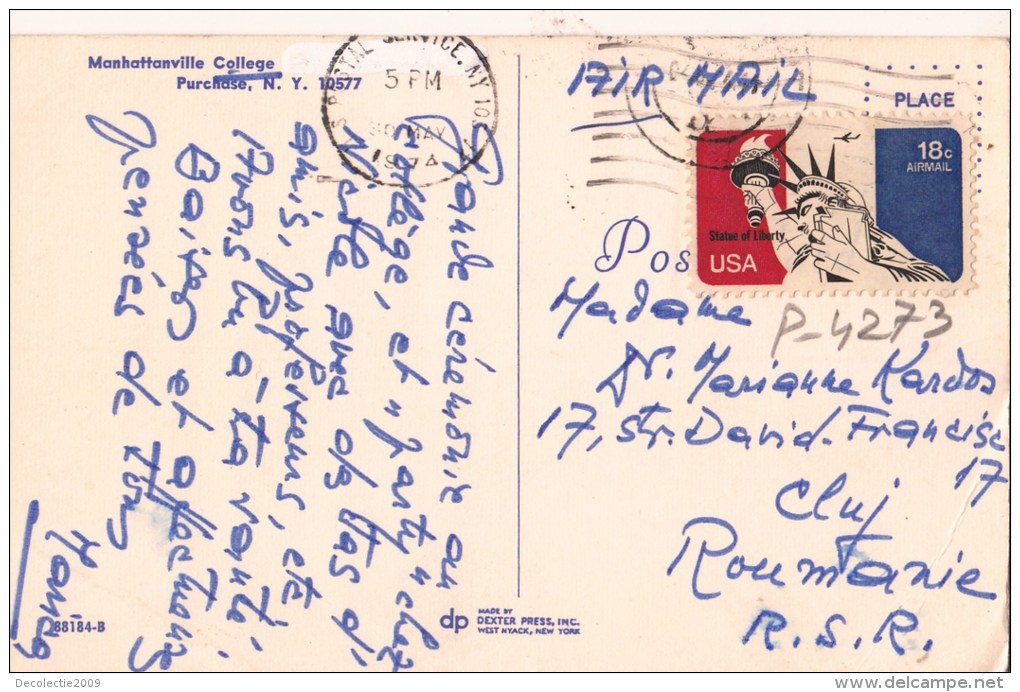 Manhattanville College
Purchase, N. Y. 10577
POSTAL SERVICE, NY 10
5 PM
30 MAY
1974
AIR MAIL
PLACE
18c
AIRMAIL
Statue of Liberty
USA
Pos
P-4273
Grande cérémonie au
collège, et "party" chez
Nicole avec des tas d'
amis, professeurs, etc
Avons bu à ta santé
Baisers et affectueuses
pensées de tous
Madame
Dr. Marianne Kardos
17, str. David. Francisc
17
Cluj
Roumanie
R.S.R.
88184-B
dp
MADE BY
DEXTER PRESS, INC.
WEST NYACK, NEW YORK
Decolectie2009
delcampe.net